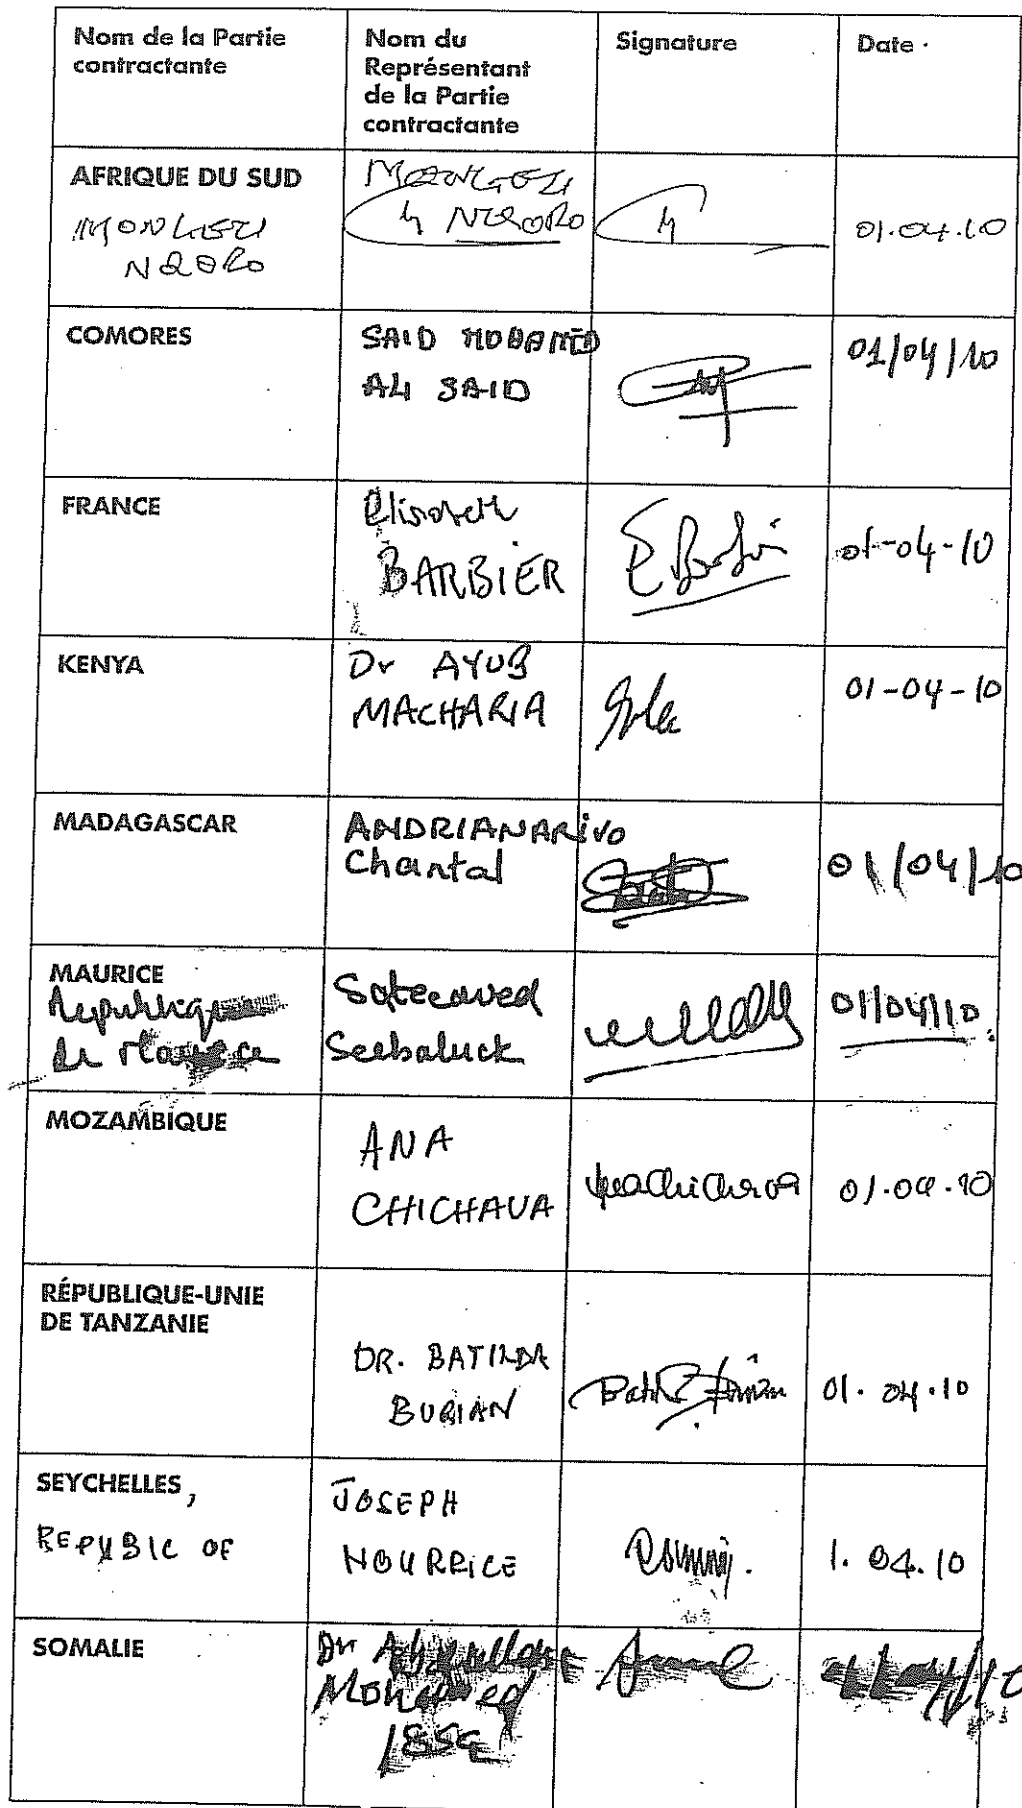 Nom de la Partie
contractante
Nom du
Représentant
de la Partie
contractante
Signature
Date
AFRIQUE DU SUD
NQORO
NQORO
01.04.10
COMORES
SAID MOHAMED
ALI SAID
01/04/10
FRANCE
Elisabeth
BARBIER
01-04-10
KENYA
Dr AYUB
MACHARIA
01-04-10
MADAGASCAR
ANDRIANARIVO
Chantal
01/04/10
MAURICE
République
de Maurice
Seebaluck
01/04/10
MOZAMBIQUE
ANA
CHICHAVA
01.04.10
RÉPUBLIQUE-UNIE
DE TANZANIE
DR. BATILDA
BURIAN
01.04.10
SEYCHELLES,
REPUBIC OF
JOSEPH
NOURRICE
1.04.10
SOMALIE
Dr
Mohamed